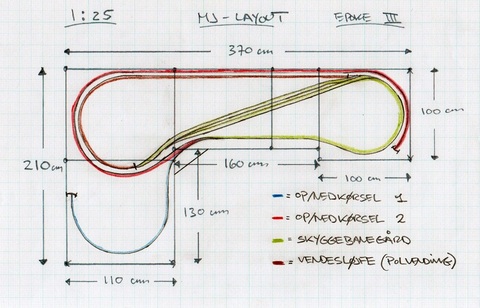 1:25 MJ-LAYOUT EPOKE III
370 cm
100 cm
210 cm
160 cm
100 cm
130 cm
110 cm
= OP/NEDKØRSEL 1
= OP/NEDKØRSEL 2
= SKYGGEBANEGÅRD
= VENDESLØJFE (POLVENDING)